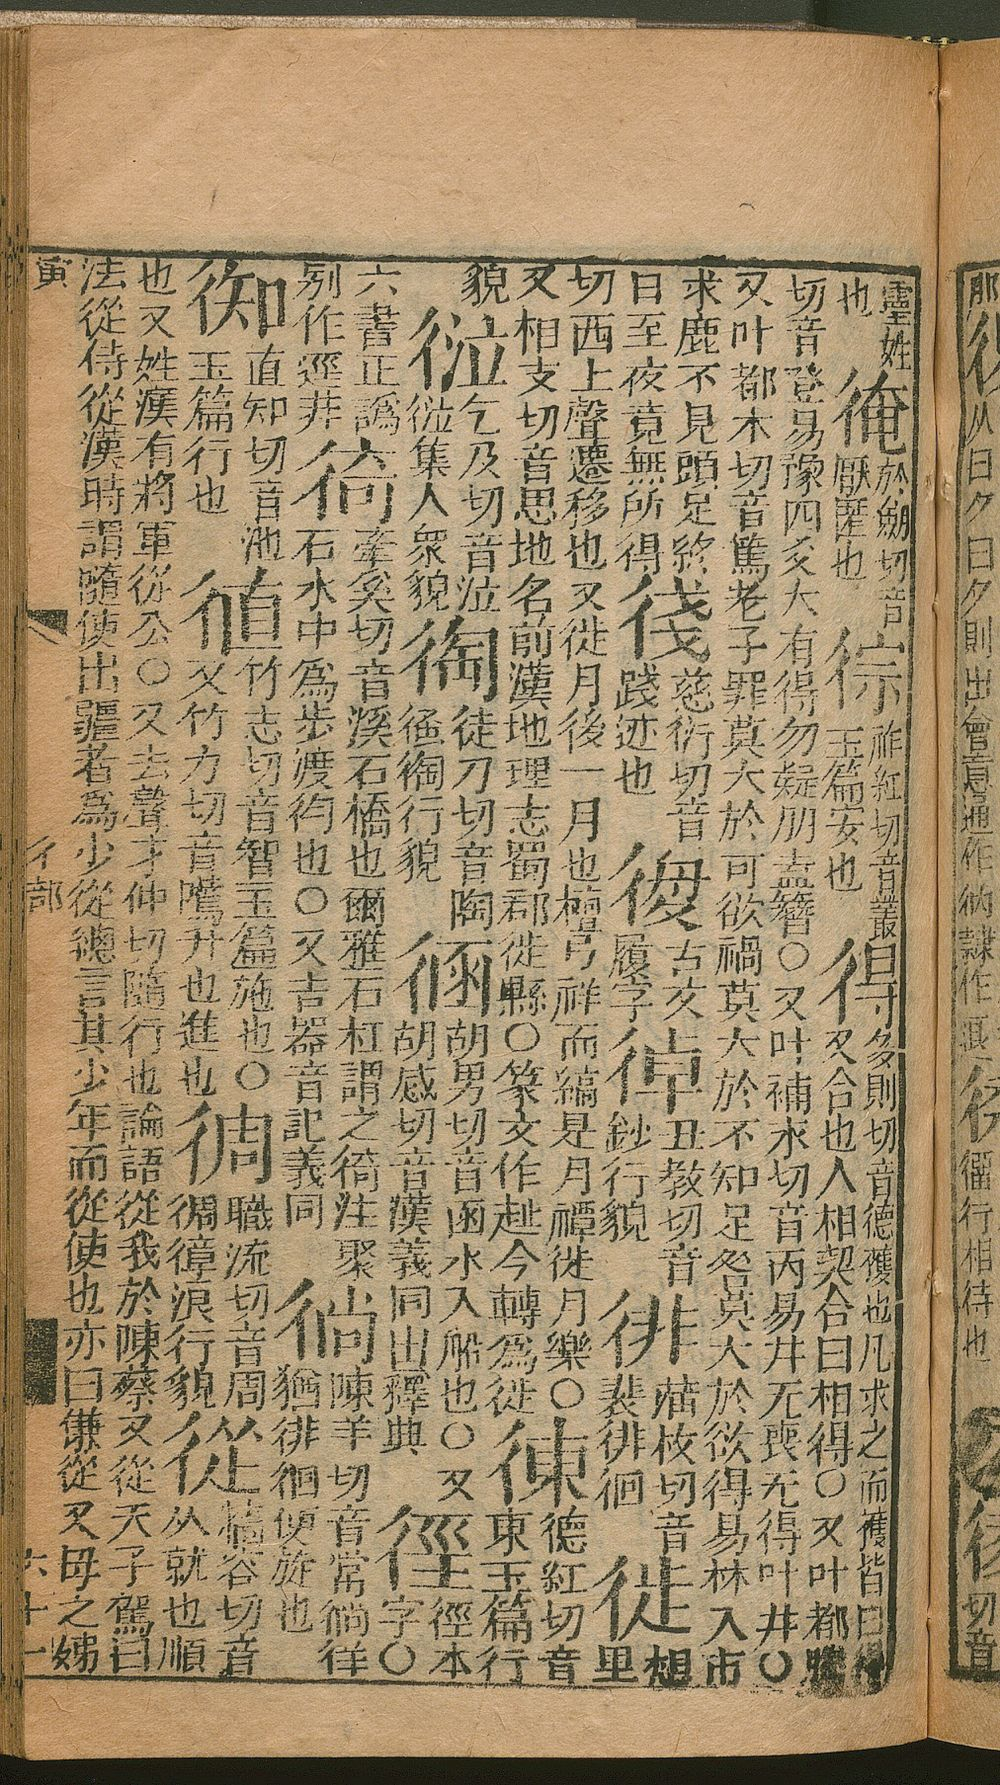 靈姓也
於劒切音厭匿也
徖祚紅切音叢玉篇安也
得多則切音德獲也凡求之而獲皆曰得又合也人相契合曰相得○又叶都騰
切音登易豫四爻大有得勿疑朋盍簪○又叶補永切音丙易井无喪无得叶井○
又叶都木切音篤老子罪莫大於可欲禍莫大於不知足咎莫大於欲得易林入市
求鹿不見頭足終日至夜竟無所得
㣤慈衍切音踐迹也
古文履字
丑教切音鈔行貌
徘蒲枚切音裴徘徊
徙想里
切西上聲遷移也又徙月後一月也檀弓祥而縞是月禫徙月樂○
又相支切音思地名前漢地理志蜀郡徙縣○篆文作今轉為徙
徚德紅切音東玉篇行
貌
乞及切音泣集人衆貌
徒刀切音陶行貌
胡男切音函水入船也○又胡感切音漢義同出釋典
徑本字○
六書正譌別作逕非
徛牽奚切音溪石橋也爾雅石杠謂之徛注聚石水中為步渡彴也○又吉器音記義同
徜陳羊切音常徜徉猶徘徊便旋也
直知切音池玉篇行也
徝竹志切音智玉篇施也○又竹力切音騭升也進也
徟職流切音周徟徫浪行貌
從牆容切音从就也順
也又姓漢有將軍從公○又去聲才仲切隨行也論語從我於陳蔡又從天子駕曰
法從侍從漢時謂隨使出疆者為少從總言其少年而從使也亦曰傔從又母之娣
寅
彳部
六十一
从日夂日夂則出會意通作納隸作
行相待也
後
切音